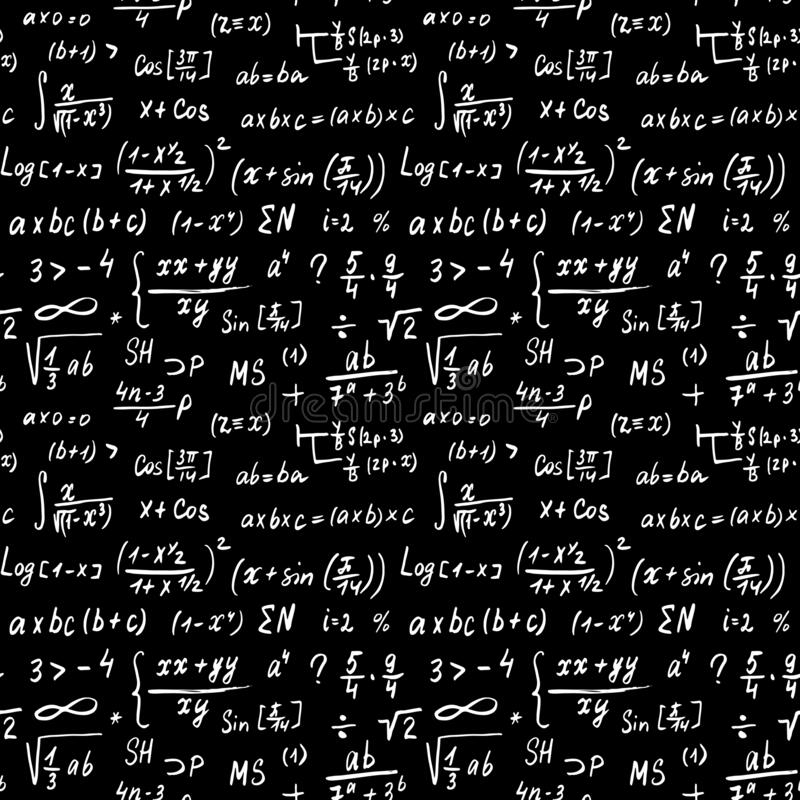 axo=o 4n-3/4 P (z≡x) y/B S(2p·3) axo=o 4n-3/4 P (z≡x) y/B S(2p·3)
x) (b+1) > Cos[3π/14] ab=ba y/B (2p·x) (b+1) > Cos[3π/14] ab=ba y/B (2p·x)
c ∫ x/√(1-x³) x+Cos axbxc=(axb)xc ∫ x/√(1-x³) x+Cos axbxc=(axb)xc
Log[1-x] (1-x^y2/1+x^1/2)² (x+sin(π/14)) Log[1-x] (1-x^y2/1+x^1/2)² (x+sin(π/14))
axbc(b+c) (1-x⁴) ΣN i=2 % axbc(b+c) (1-x⁴) ΣN i=2 %
3>-4 { xx+yy/xy a⁴ ? 5/4·9/4 3>-4 { xx+yy/xy a⁴ ? 5/4·9/4
2 ∞ * Sin[π/14] ÷ √2 ∞ * Sin[π/14] ÷ √2
√1/3 ab SH ⊃P MS (1) + ab/7ᵃ+3ᵇ √1/3 ab SH ⊃P MS (1) + ab/7ᵃ+3ᵇ
dreamstime
axo=o 4n-3/4 P (z≡x) y/B S(2p·3) axo=o 4n-3/4 P (z≡x) y/B S(2p·3)
x) (b+1) > Cos[3π/14] ab=ba y/B (2p·x) (b+1) > Cos[3π/14] ab=ba y/B (2p·x)
c ∫ x/√(1-x³) x+Cos axbxc=(axb)xc ∫ x/√(1-x³) x+Cos axbxc=(axb)xc
Log[1-x] (1-x^y2/1+x^1/2)² (x+sin(π/14)) Log[1-x] (1-x^y2/1+x^1/2)² (x+sin(π/14))
axbc(b+c) (1-x⁴) ΣN i=2 % axbc(b+c) (1-x⁴) ΣN i=2 %
3>-4 { xx+yy/xy a⁴ ? 5/4·9/4 3>-4 { xx+yy/xy a⁴ ? 5/4·9/4
2 ∞ * Sin[π/14] ÷ √2 ∞ * Sin[π/14] ÷ √2
√1/3 ab SH ⊃P MS (1) ab/7ᵃ+3ᵇ √1/3 ab SH ⊃P MS (1) ab/7ᵃ+3ᵇ
4n-3 + 4n-3 +